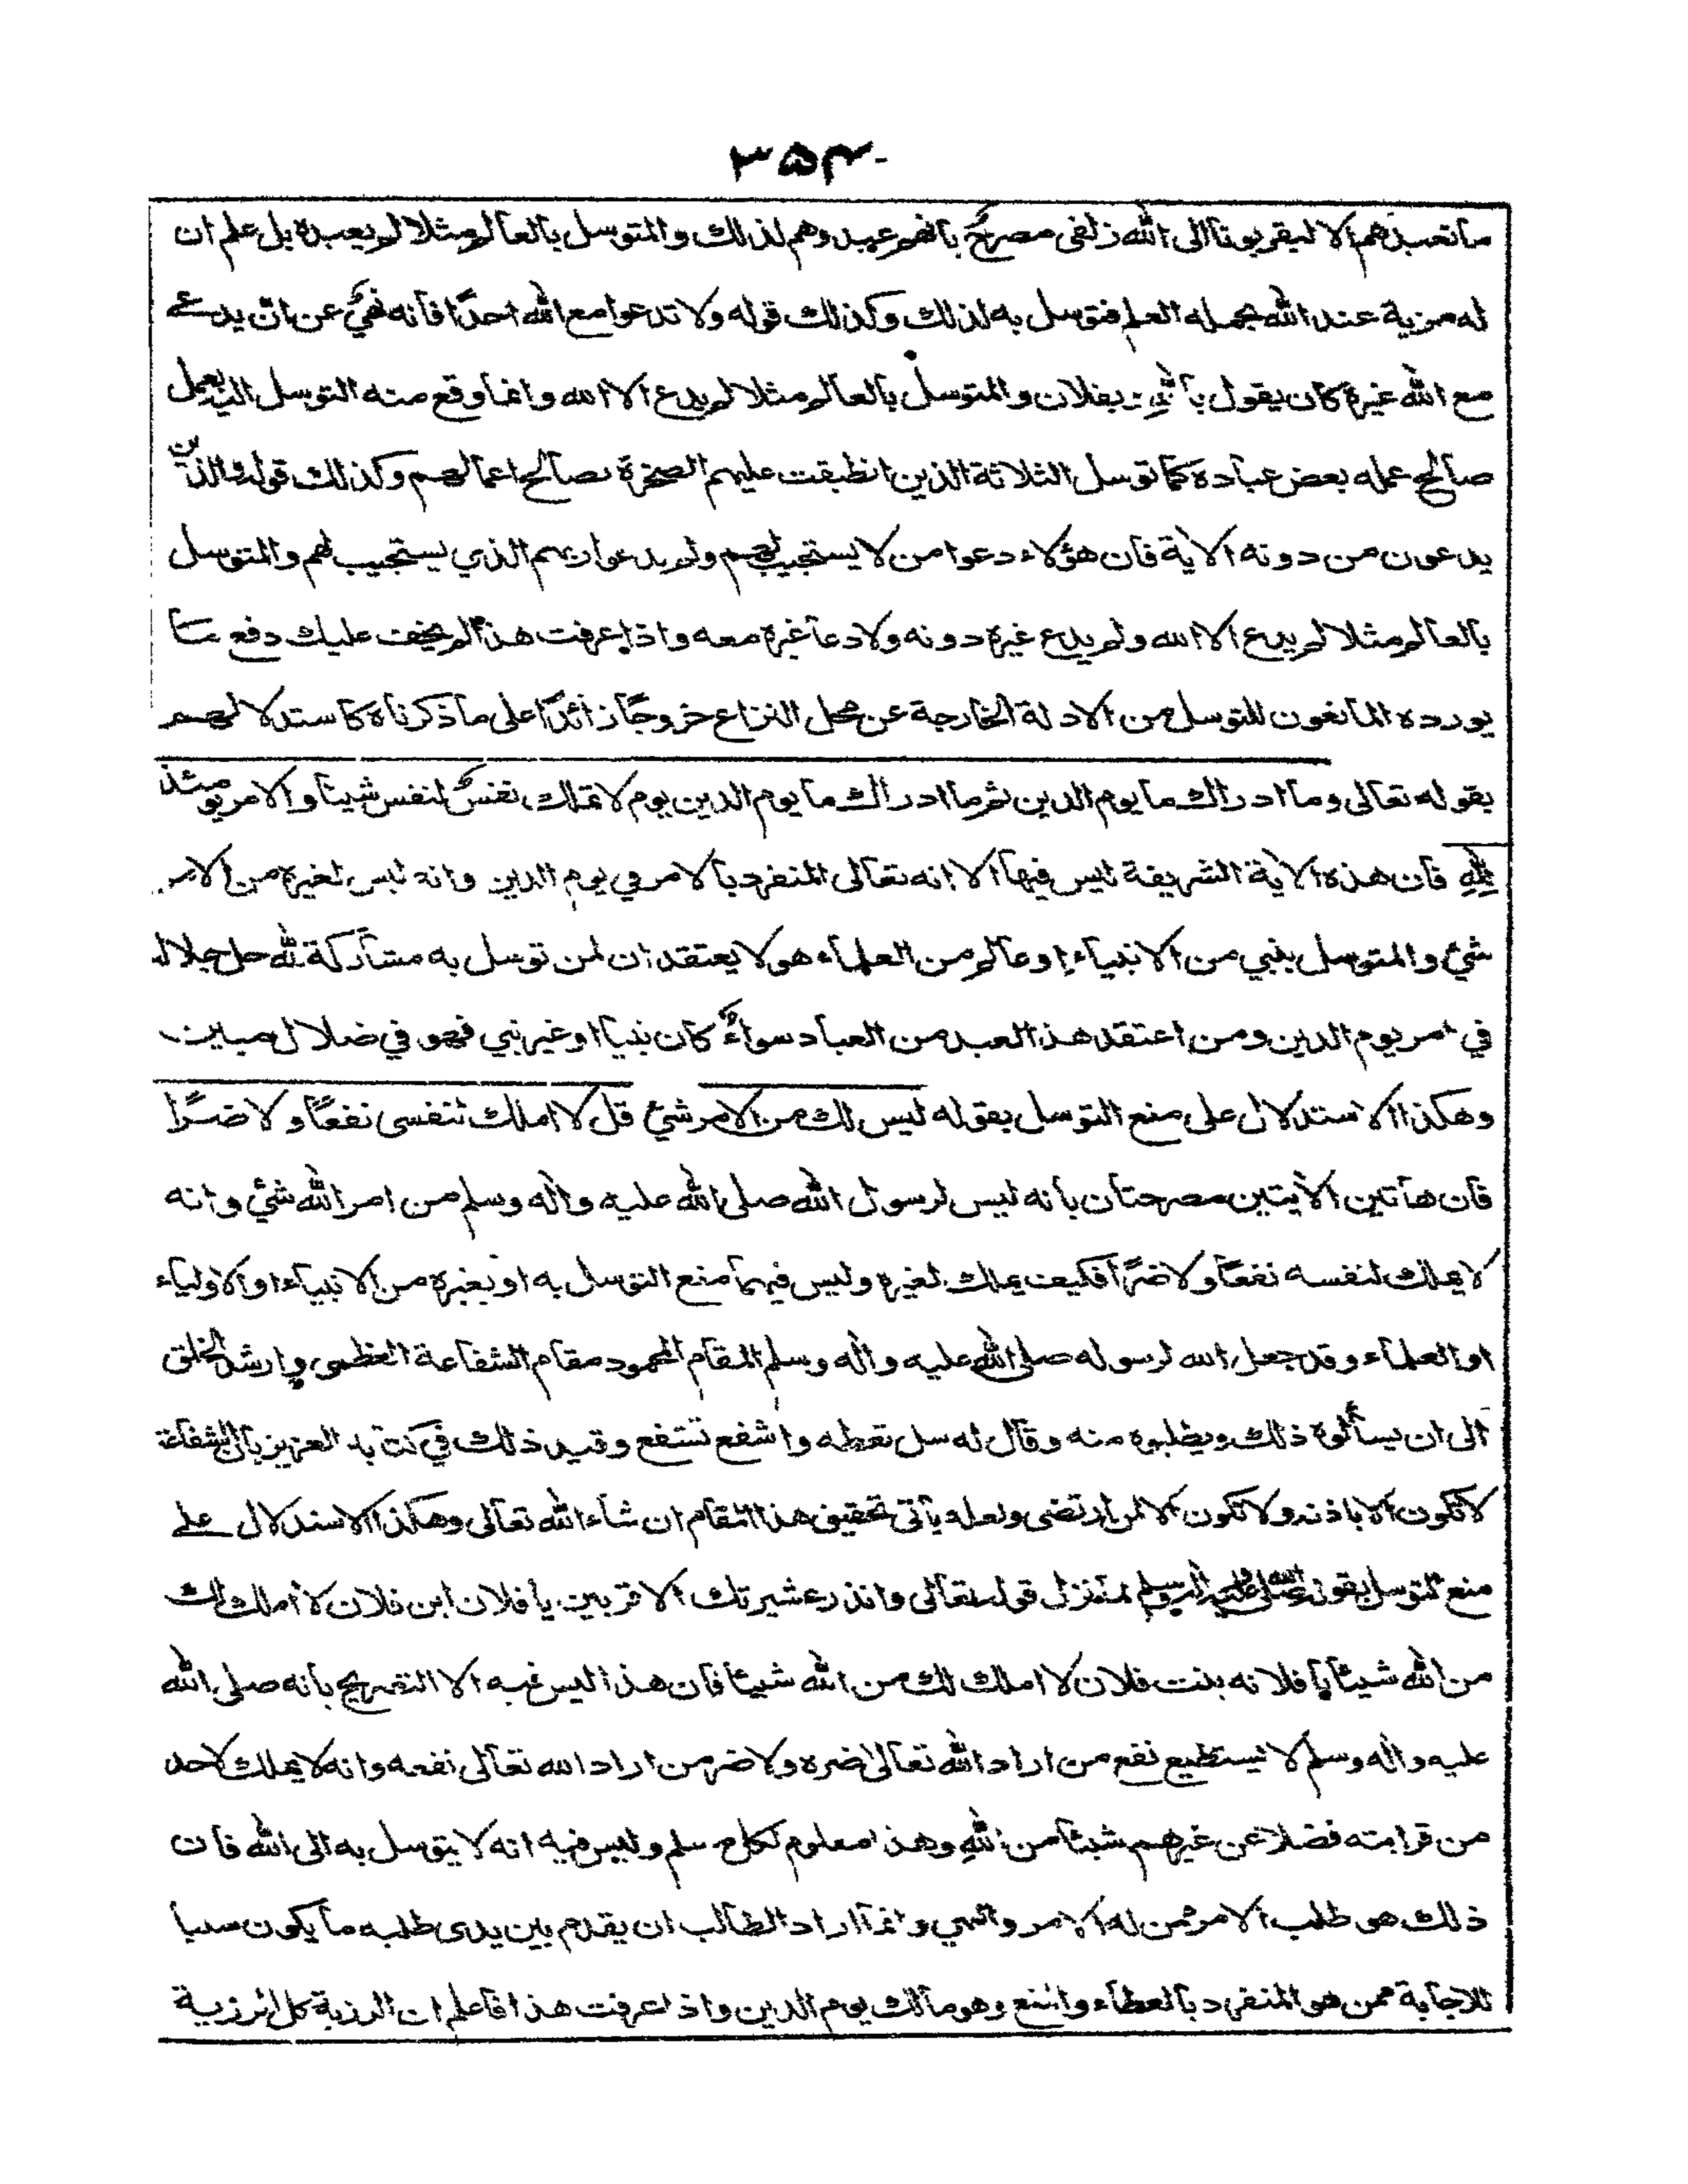 ۳۵۴
ما نعبدهم الا ليقربونا الى الله زلفى مصرح بانهم عبدوهم لذلك والمتوسل بالعالم مثلا لم يعبده بل علم ان
له مزية عند الله بحمله العلم فتوسل به لذلك وكذلك قوله ولا تدعوا مع الله احدًا فانه نهيٌ عن ان يدعے
مع الله غيره كان يقول بالله بفلان والمتوسل بالعالم مثلا لم يدع الا الله وانما وقع منه التوسل اليه بعمل
صالح عمله بعض عباده كما توسل الثلاثة الذين انطبقت عليهم الصخرة بصالح اعمالهم وكذلك قوله والذين
يدعون من دونه الآية فان هؤلاء دعوا من لا يستجيب لهم ولم يدعوا ربهم الذي يستجيب لهم والمتوسل
بالعالم مثلا لم يدع الا الله ولم يدع غيره دونه ولا دعا غيره معه واذا عرفت هذا لم يخف عليك دفع ما
يورده المانعون للتوسل من الادلة الخارجة عن محل النزاع خروجًا زائدًا على ما ذكرناه كاستدلالهم
بقوله تعالى وما ادراك ما يوم الدين ثم ما ادراك ما يوم الدين يوم لا تملك نفسٌ لنفس شيئا والامر يومئذ
لِلّٰهِ فان هذه الآية الشريفة ليس فيها الا انه تعالى المنفرد بالامر في يوم الدين وانه ليس لغيره من الامر
شيئ والمتوسل بنبي من الانبياء او عالم من العلماء هو لا يعتقد ان لمن توسل به مشاركة لله جل جلاله
في امر يوم الدين ومن اعتقد هذا لعبد من العباد سواءٌ كان نبيا او غير نبي فهو في ضلال مبين
وهكذا الاستدلال على منع التوسل بقوله ليس لك من الامر شيئ قل لا املك لنفسى نفعًا ولا ضرًا
فان هاتين الآيتين مصرحتان بانه ليس لرسول الله صلى الله عليه وآله وسلم من امر الله شيئ وانه
لا يملك لنفسه نفعًا ولا ضرًا فكيف يملك لغيره وليس فيهما منع التوسل به او بغيره من الانبياء او الاولياء
او العلماء وقد جعل الله لرسوله صلى الله عليه وآله وسلم المقام المحمود مقام الشفاعة العظمى وارشد الخلق
الى ان يسألوه ذلك ويطلبوه منه وقال له سل تعطه واشفع تشفع وقيد ذلك في كتابه العزيز بان الشفاعة
لا تكون الا باذنه ولا تكون الا لمن ارتضى ولعله يأتى تحقيق هذا المقام ان شاء الله تعالى وهكذا الاستدلال علے
منع التوسل بقوله صلى الله عليه وآله وسلم لما نزل قوله تعالى وانذر عشيرتك الاقربين يا فلان ابن فلان لا املك لك
من الله شيئا يا فلانه بنت فلان لا املك لك من الله شيئا فان هذا ليس فيه الا التصريح بانه صلى الله
عليه وآله وسلم لا يستطيع نفع من اراد الله تعالى ضره ولا ضر من اراد الله تعالى نفعه وانه لا يملك لاحد
من قرابته فضلا عن غيرهم شيئا من الله وهذا معلوم لكل مسلم وليس فيه انه لا يتوسل به الى الله فان
ذلك هو طلب الامر ممن له الامر والنهي وانما اراد الطالب ان يقدم بين يدى طلبه ما يكون سببا
للاجابة ممن هو المنفرد بالعطاء والمنع وهو مالك يوم الدين واذا عرفت هذا فاعلم ان الرزية كل الرزية